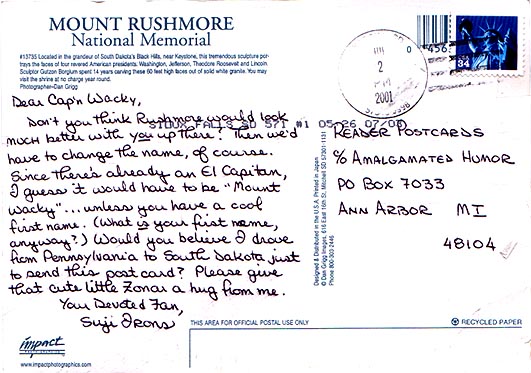 MOUNT RUSHMORE
National Memorial
#13735 Located in the grandeur of South Dakota's Black Hills, near Keystone, this tremendous sculpture por-
trays the faces of four revered American presidents. Washington, Jefferson, Theodore Roosevelt and Lincoln.
Sculptor Gutzon Borglum spent 14 years carving these 60 feet high faces out of solid white granite. You may
visit the shrine at no charge year round.
Photographer-Dan Grigg
Dear Cap'n Wacky,
Don't you think Rushmore would look
much better with you up there? Then we'd
have to change the name, of course.
Since there's already an El Capitan,
I guess it would have to be "Mount
Wacky"... unless you have a cool
first name. (What is your first name,
anyway?) Would you believe I drove
from Pennsylvania to South Dakota just
to send this postcard? Please give
that cute little Zonar a hug from me.
Your Devoted Fan,
Suji Irons
SIOUX FALLS SD 571 #1 05-26 07/03
2
2001
0 456
34
READER POSTCARDS
% AMALGAMATED HUMOR
PO BOX 7033
ANN ARBOR MI
48104
Designed & Distributed in the U.S.A. Printed in Japan
© Dan Grigg Images, 616 East 16th St, Mitchell SD 57301-1131
Phone 800-303-2446
THIS AREA FOR OFFICIAL POSTAL USE ONLY
RECYCLED PAPER
impact
www.impactphotographics.com